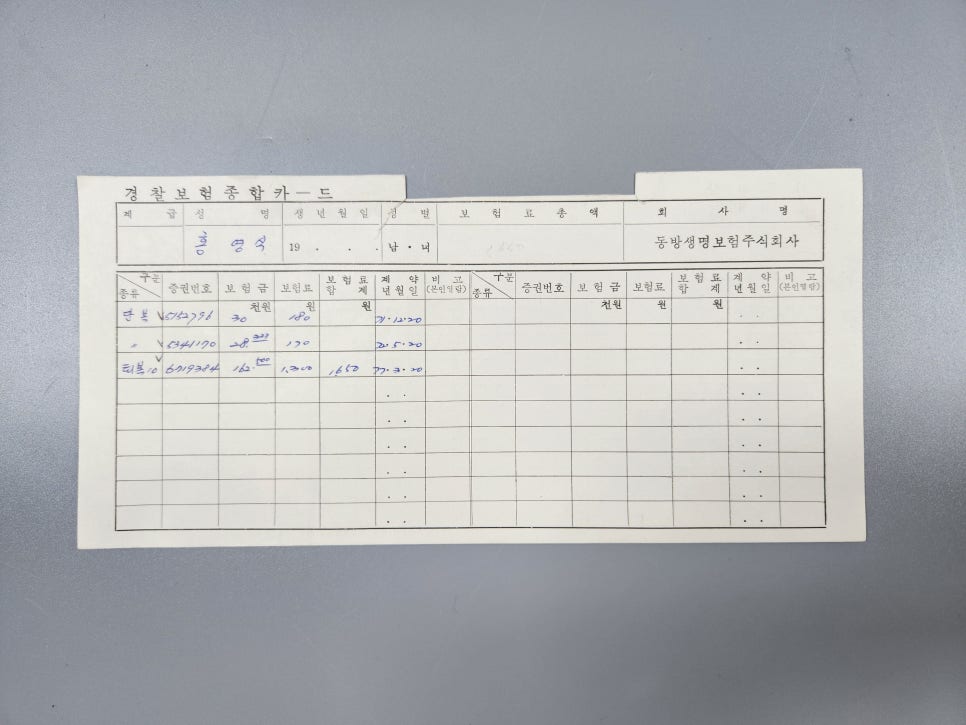 경찰보험종합카ー드
계 급 성 명 생 년 월 일 성 별 보 험 료 총 액 회 사 명
홍 영 식 19 . . . 남 · 녀 동방생명보험주식회사
구분 종류 증권번호 보 험 금 보험료 보 험 료 합 계 계 약 년 월 일 비 고 (본인열람) 구분 종류 증권번호 보 험 금 보험료 보 험 료 합 계 계 약 년 월 일 비 고 (본인열람)
천원 원 원 천원 원 원
단 복 5152796 30 180 12.20 . .
〃 5341170 28. 170 5.20 . .
퇴복 10 6719384 162. 1,300 1,650 . .
. . . .
. . . .
. . . .
. . . .
. . . .
. . . .